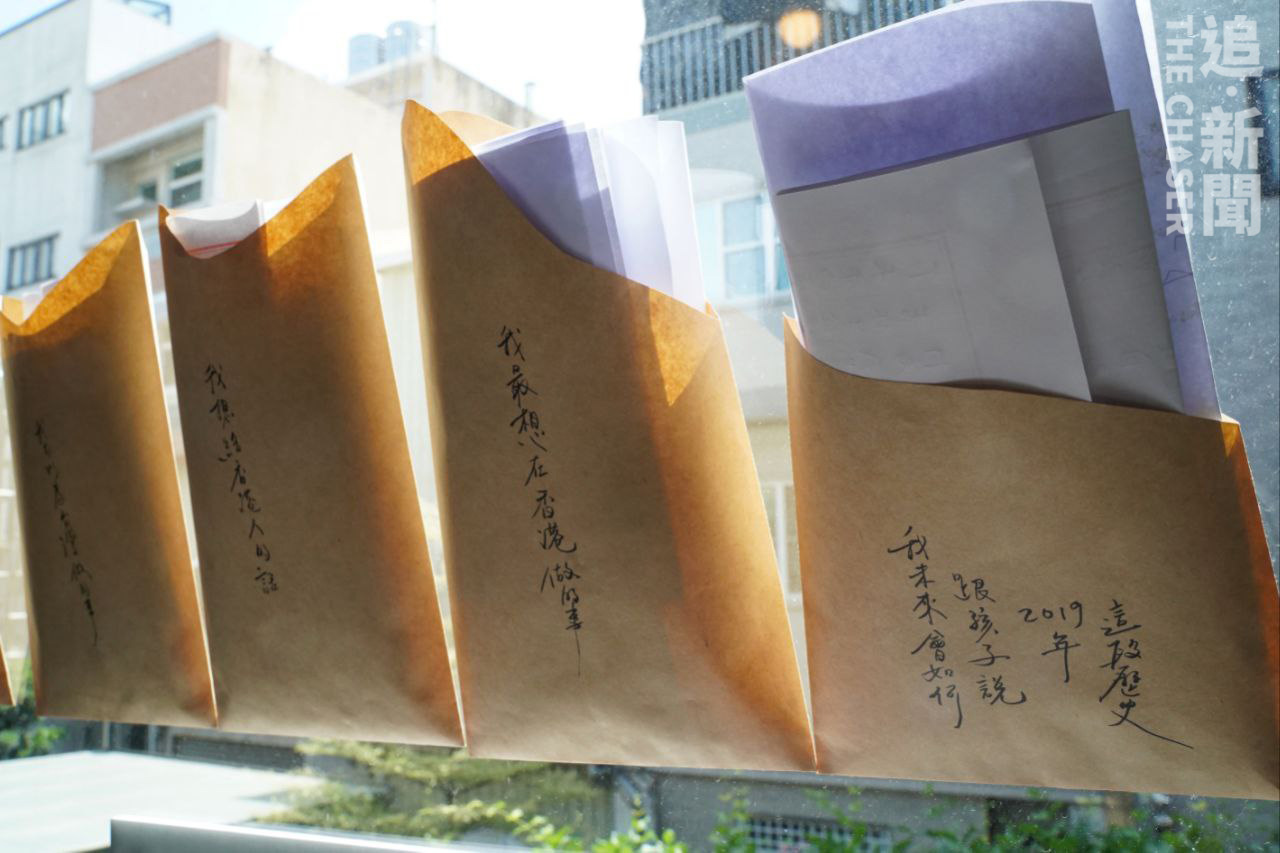 做的事
我想給香港人的話
我最想在香港做的事
我未來會如何
跟孩子說
2019
年
這段歷史
追·新聞
THE CHASER